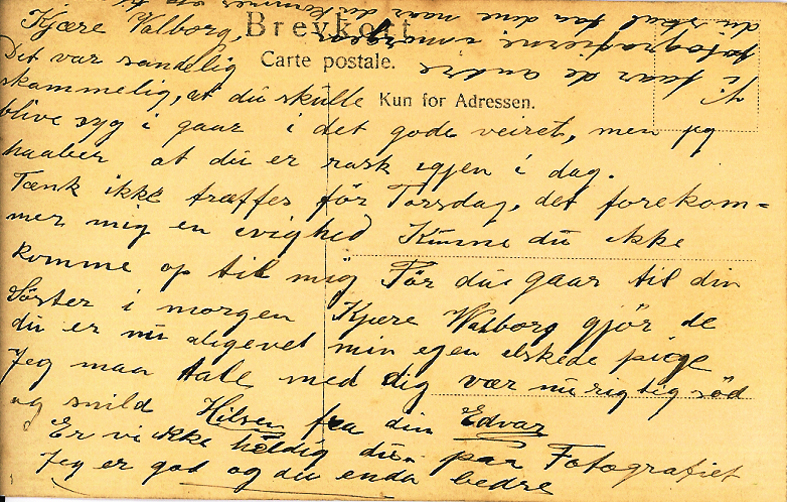 Brevkort.
Carte postale.
Kun for Adressen.
Kjære Valborg,
Det var sandelig
skammelig, at du skulle
blive syg i gaar i det gode veiret, men jeg
haaber at du er rask igjen i dag.
Tænk ikke træffes før Torsdag, det forekom=
mer mig en evighed Kunne du ikke
komme op til mig Før du gaar til din
Søster i morgen Kjære Valborg gjør de
du er nu aligevel min egen elskede pige
Jeg maa tale med dig vær nu rigtig sød
og snild Hilsen fra din Edvar
Er vi ikke heldig du paa Fotografiet
Jeg er god og du enda bedre
Vi faar de andre
fotografierne i morgen
du skal faa dine naar du kommer